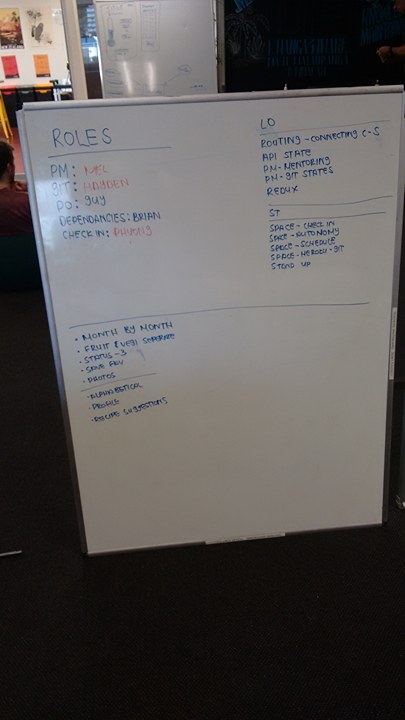 ROLES
PM: MEL
GIT: HAYDEN
PO: GUY
DEPENDANCIES: BRIAN
CHECK IN:
LO
ROUTING - CONNECTING C-S
API STATE
PM - MENTORING
PM - GIT STATES
REDUX
ST
SPACE - CHECK IN
SPACE - AUTONOMY
SPACE - SCHEDULE
SPACE - HEROKU - GIT
STAND UP
• MONTH BY MONTH
• FRUIT & VEGI SEPERATE
• STATUS - 3
• SAVE FAV
• PHOTOS
• ALPHABETICAL
• PROFILE
• RECIPE SUGGESTIONS